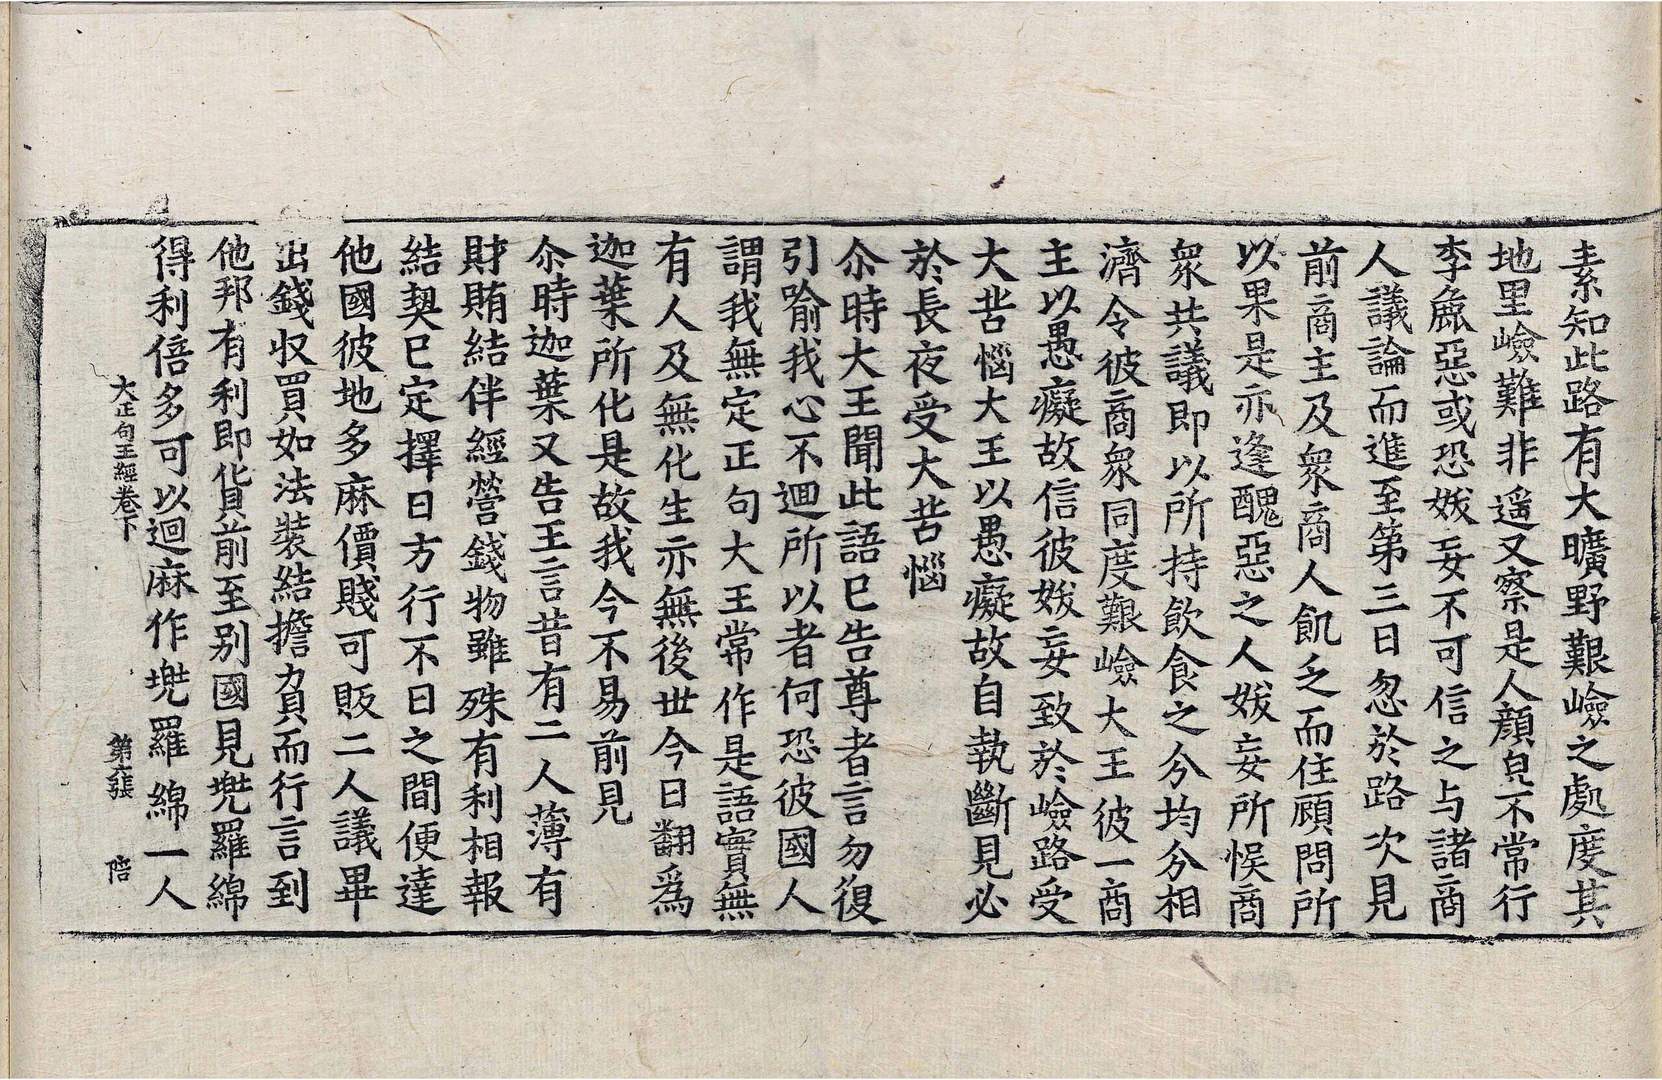 素知此路有大曠野艱嶮之處度其
地里嶮難非遥又察是人顏皃不常行
李麁惡或恐妖妄不可信之与諸商
人議論而進至第三日忽於路次見
前商主及衆商人飢乏而住顧問所
以果是亦逢醜惡之人妖妄所悞商
衆共議即以所持飲食之分均分相
濟令彼商衆同度艱嶮大王彼一商
主以愚癡故信彼妖妄致於嶮路受
大苦惱大王以愚癡故自執斷見必
於長夜受大苦惱
尒時大王聞此語已告尊者言勿復
引喻我心不迴所以者何恐彼國人
謂我無定正句大王常作是語實無
有人及無化生亦無後世今日翻為
迦葉所化是故我今不易前見
尒時迦葉又告王言昔有二人薄有
財賄結伴經營錢物雖殊有利相報
結契已定擇日方行不日之間便達
他國彼地多麻價賤可販二人議畢
出錢収買如法裝結擔負而行言到
他邦有利即貨前至别國見兠羅綿
得利倍多可以迴麻作兠羅綿一人
大正句王經卷下 第六張 陪